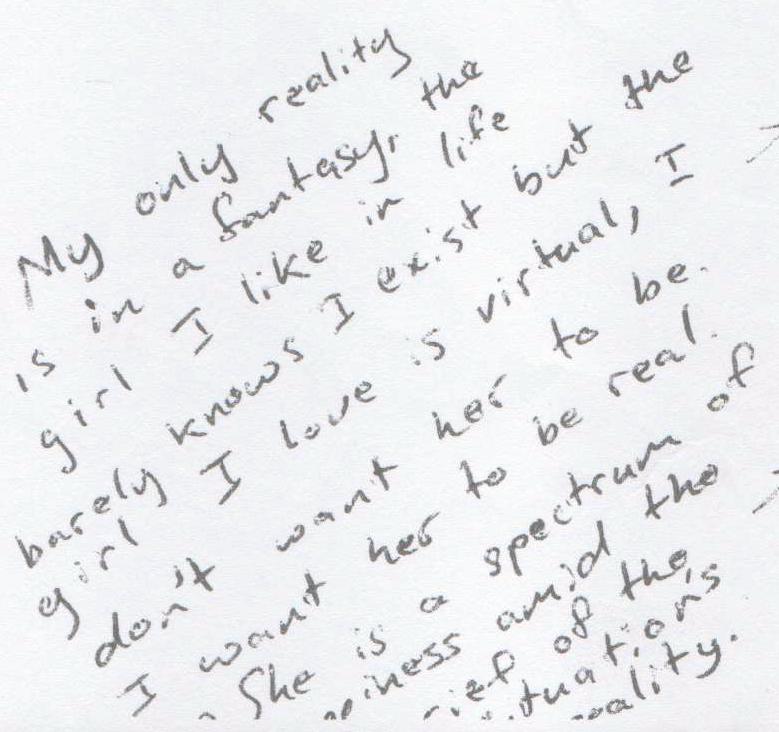 My only reality
is in a fantasy, the
girl I like in life
barely knows I exist but the
girl I love is virtual, I
don't want her to be.
I want her to be real.
She is a spectrum of
piness amid the
rief of the
tuations
eality.